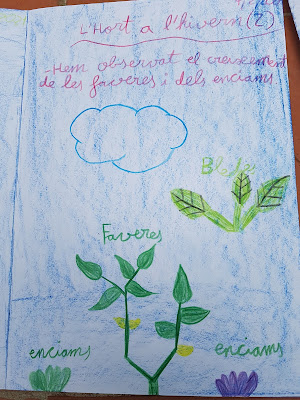 L'Hort a l'hivern (2)
-Hem observat el creixement
de les faveres i dels enciams
Faveres
enciams
enciams